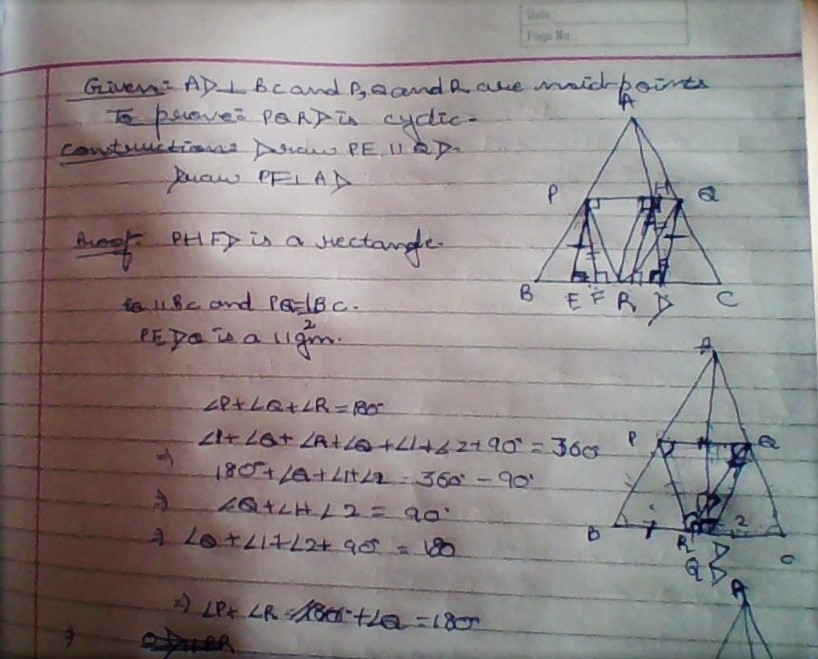 Date
Page No
Given:- AD ⊥ BC and P, Q and R are mid-points
To prove:- PQRD is cyclic.
Construction:- Draw PE || QD.
Draw PF ⊥ AD
Proof:- PHFD is a rectangle.
|| BC and PQ = 1/2 BC.
PEDQ is a ||gm.
∠P+∠Q+∠R=180°
∠P+∠Q+∠R+∠Q+∠1+∠2+90°=360°
⇒ 180°+∠Q+∠1+∠2=360°-90°
⇒ ∠Q+∠1+∠2=90°
⇒ ∠Q+∠1+∠2+90°=180
⇒ ∠P+∠R= +∠Q=180°
⇒
A
P Q
B E F R D C
A
P H Q
B 1 R D 2 C
Q D
A